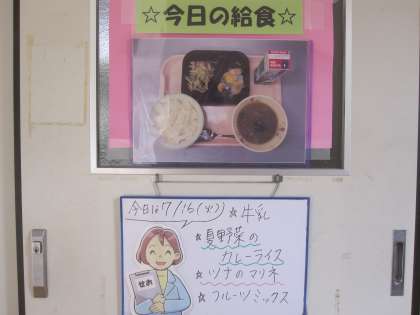 ☆今日の給食☆
今日は7/16(火)
☆牛乳
☆夏野菜の
カレーライス
☆ツナのマリネ
☆フルーツミックス